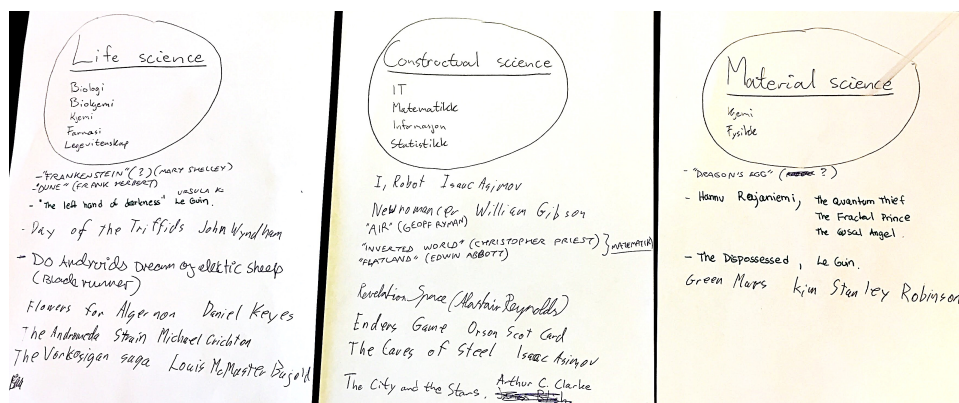 Life science
Biologi
Biokjemi
Kjemi
Farmasi
Legevitenskap
- "FRANKENSTEIN" (?) (MARY SHELLEY)
- "DUNE" (FRANK HERBERT)
- "The left hand of darkness" URSULA K. Le Guin.
- Day of the Triffids John Wyndham
- Do Androids Dream of elektic sheep
(Blade runner)
Flowers for Algernon Daniel Keyes
The Andromeda Strain Michael Crichton
The Vorkosigan saga Louis McMaster Bujold
Constructual science
IT
Matematikk
Informasjon
Statistikk
I, Robot Isaac Asimov
Neuromancer William Gibson
"AIR" (GEOFF RYMAN)
"INVERTED WORLD" (CHRISTOPHER PRIEST) } MATEMATIKK
"FLATLAND" (EDWIN ABBOTT)
Revelation Space (Alastair Reynolds)
Enders Game Orson Scot Card
The Caves of Steel Isaac Asimov
The City and the Stars. Arthur C. Clarke
Material science
Kjemi
Fysikk
- "DRAGON'S EGG" ( ?)
- Hannu Rajaniemi, The Quantum Thief
The Fractal Prince
The Causal Angel.
- The Dispossessed, Le Guin.
Green Mars Kim Stanley Robinson